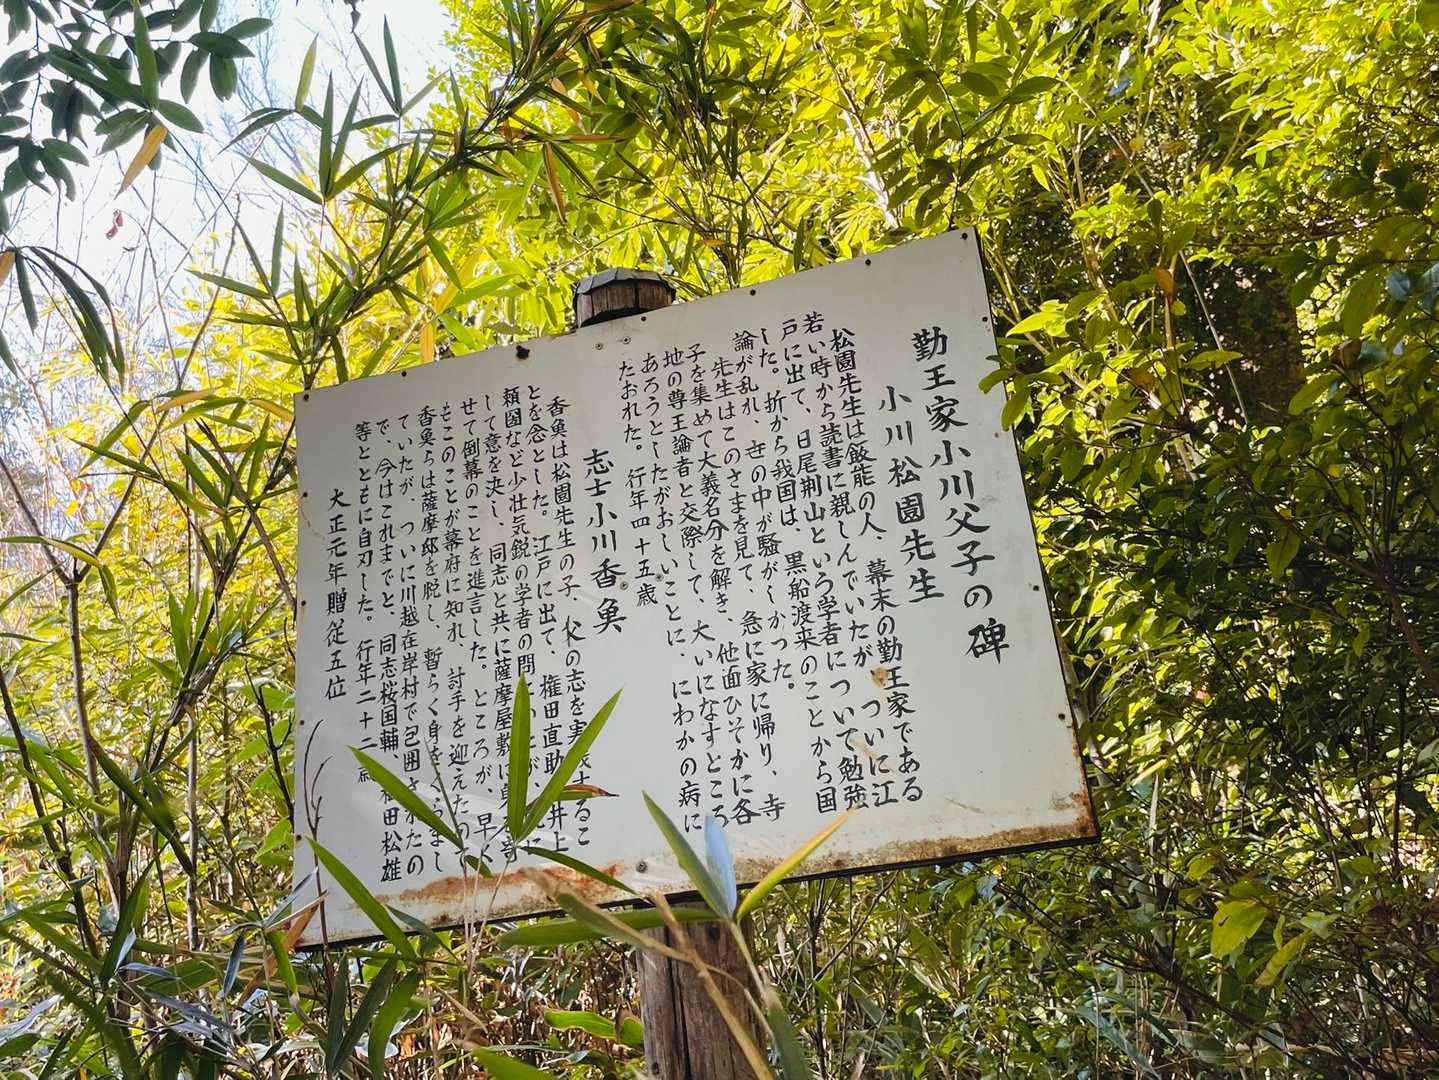 勤王家小川父子の碑
小川松園先生
松園先生は飯能の人、幕末の勤王家である
若い時から読書に親しんでいたが、ついに江
戸に出て、日尾荆山という学者について勉強
した。折から我国は、黒船渡来のことから国
論が乱れ、世の中が騒がしかった。
先生はこのさまを見て、急に家に帰り、寺
子を集めて大義名分を解き、他面ひそかに各
地の尊王論者と交際して、大いになすところ
あろうとしたがおしいことに、にわかの病に
たおれた。行年四十五歳
志士小川香魚
香魚は松園先生の子、父の志を実するこ
とを念とした。江戸に出て、権田直助、井上
頼圀など少壮気鋭の学者の間に
して意を決し、同志と共に薩摩屋敷に
せて倒幕のことを進言した。ところが、早く
もこのことが幕府に知れ、討手を迎えたので
香魚らは薩摩邸を脱し、暫らく身をまし
ていたが、ついに川越在岸村で包囲されたの
で、今はこれまでと、同志桜国輔、田松雄
等とともに自刃した。行年二十二歳
大正元年贈従五位